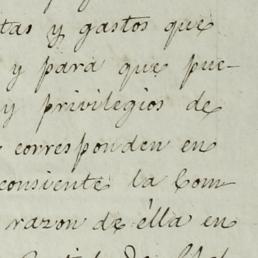 tas y gastos que
y para que pue-
y privilegios de
corresponden en
consiente la Com-
razon de élla en